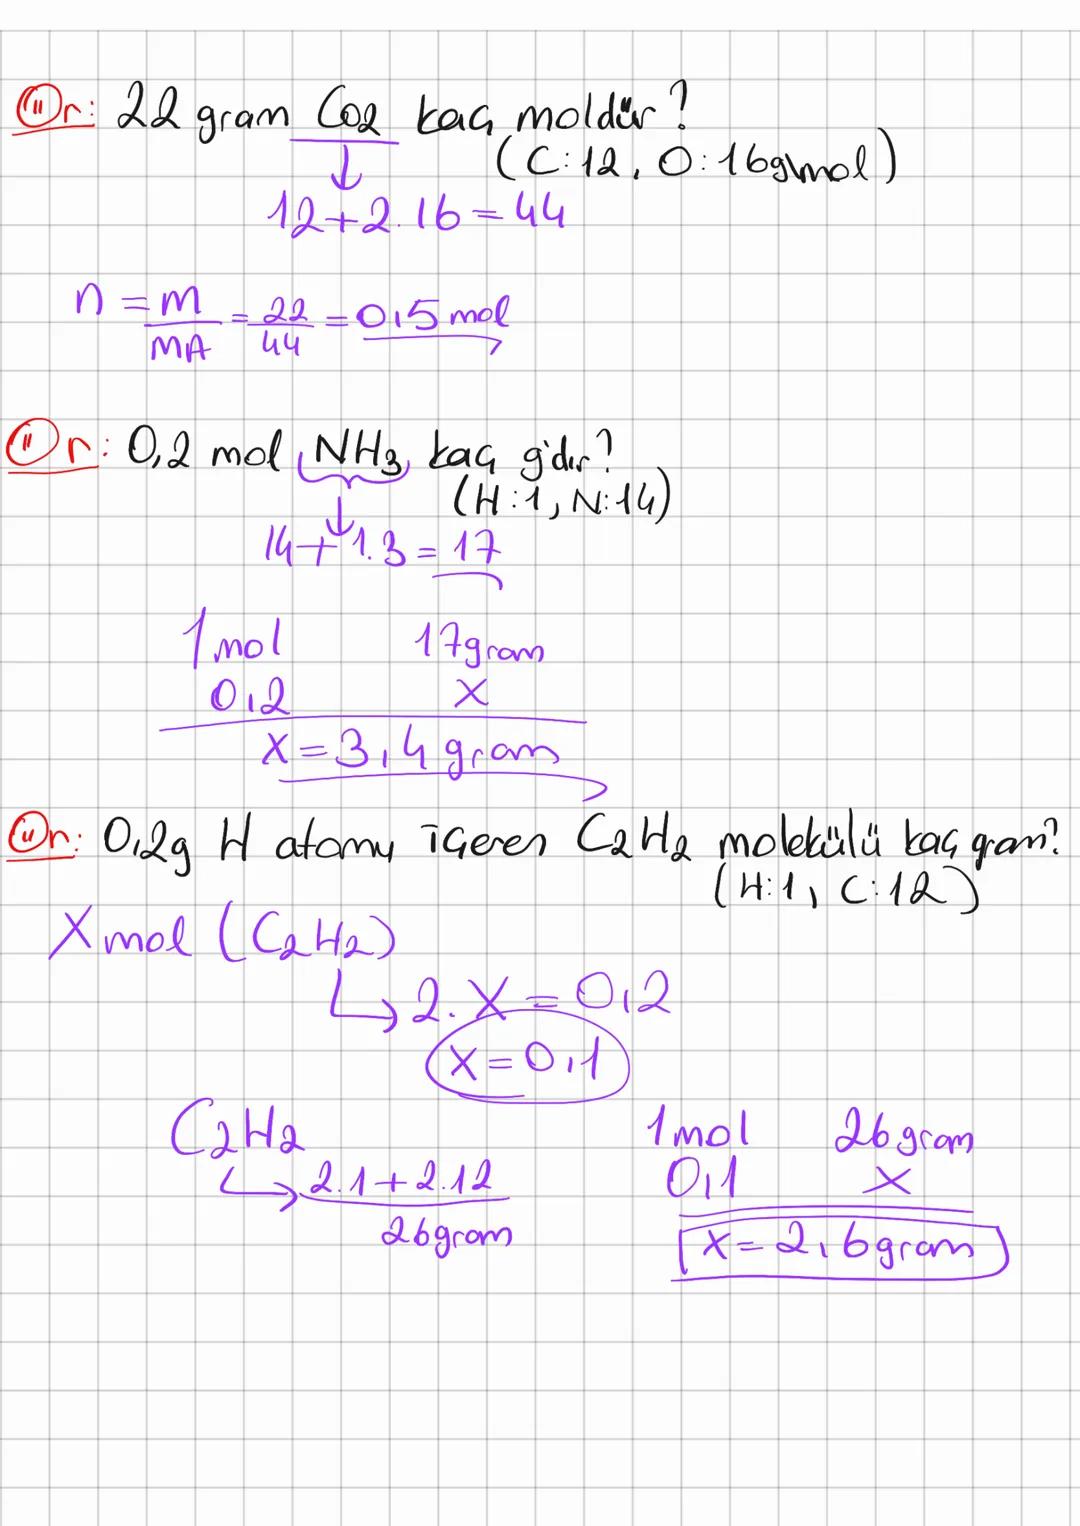 Ör: 22 gram CO2 kaç moldür?
(C:12, O:16g/mol)
12+2.16=44
n = m/MA = 22/44 = 0,5 mol
Ör: 0,2 mol NH3 kaç g'dır?
(H:1, N:14)
14+1.3=17
1 mol 17gram
0,2 X
X=3,4 gram
Ör: 0,2g H atomu içeren C2H2 molekülü kaç gram?
(H:1, C:12)
X mol (C2H2)
2.X=0,2
X=0,1
C2H2
2.1+2.12
26gram
1mol 26gram
0,1 X
X=2,6gram